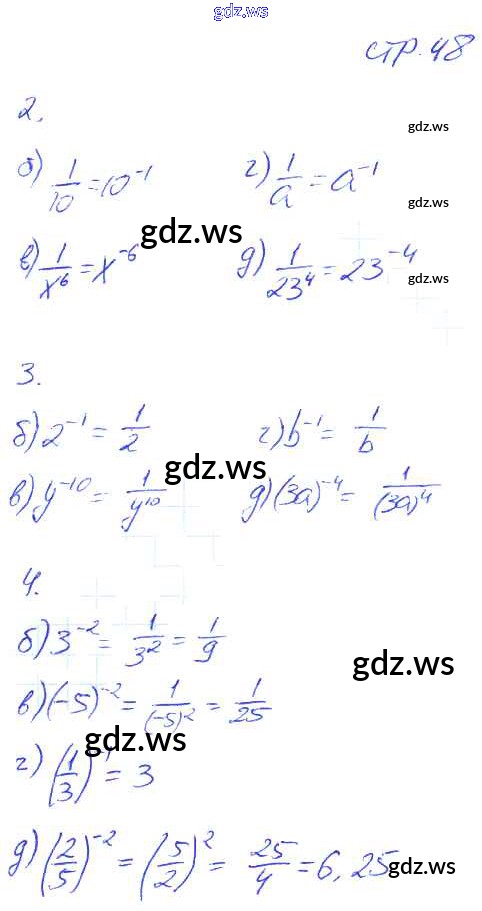 gdz.ws
стр. 48
2.
gdz.ws
б) 1/10 = 10⁻¹ г) 1/a = a⁻¹
gdz.ws
gdz.ws
в) 1/x⁶ = x⁻⁶ д) 1/23⁴ = 23⁻⁴
gdz.ws
3.
б) 2⁻¹ = 1/2 г) b⁻¹ = 1/b
gdz.ws
в) y⁻¹⁰ = 1/y¹⁰ д) (3a)⁻⁴ = 1/(3a)⁴
4.
б) 3⁻² = 1/3² = 1/9
gdz.ws
в) (-5)⁻² = 1/(-5)² = 1/25
gdz.ws
г) (1/3)⁻¹ = 3
д) (2/5)⁻² = (5/2)² = 25/4 = 6,25
gdz.ws